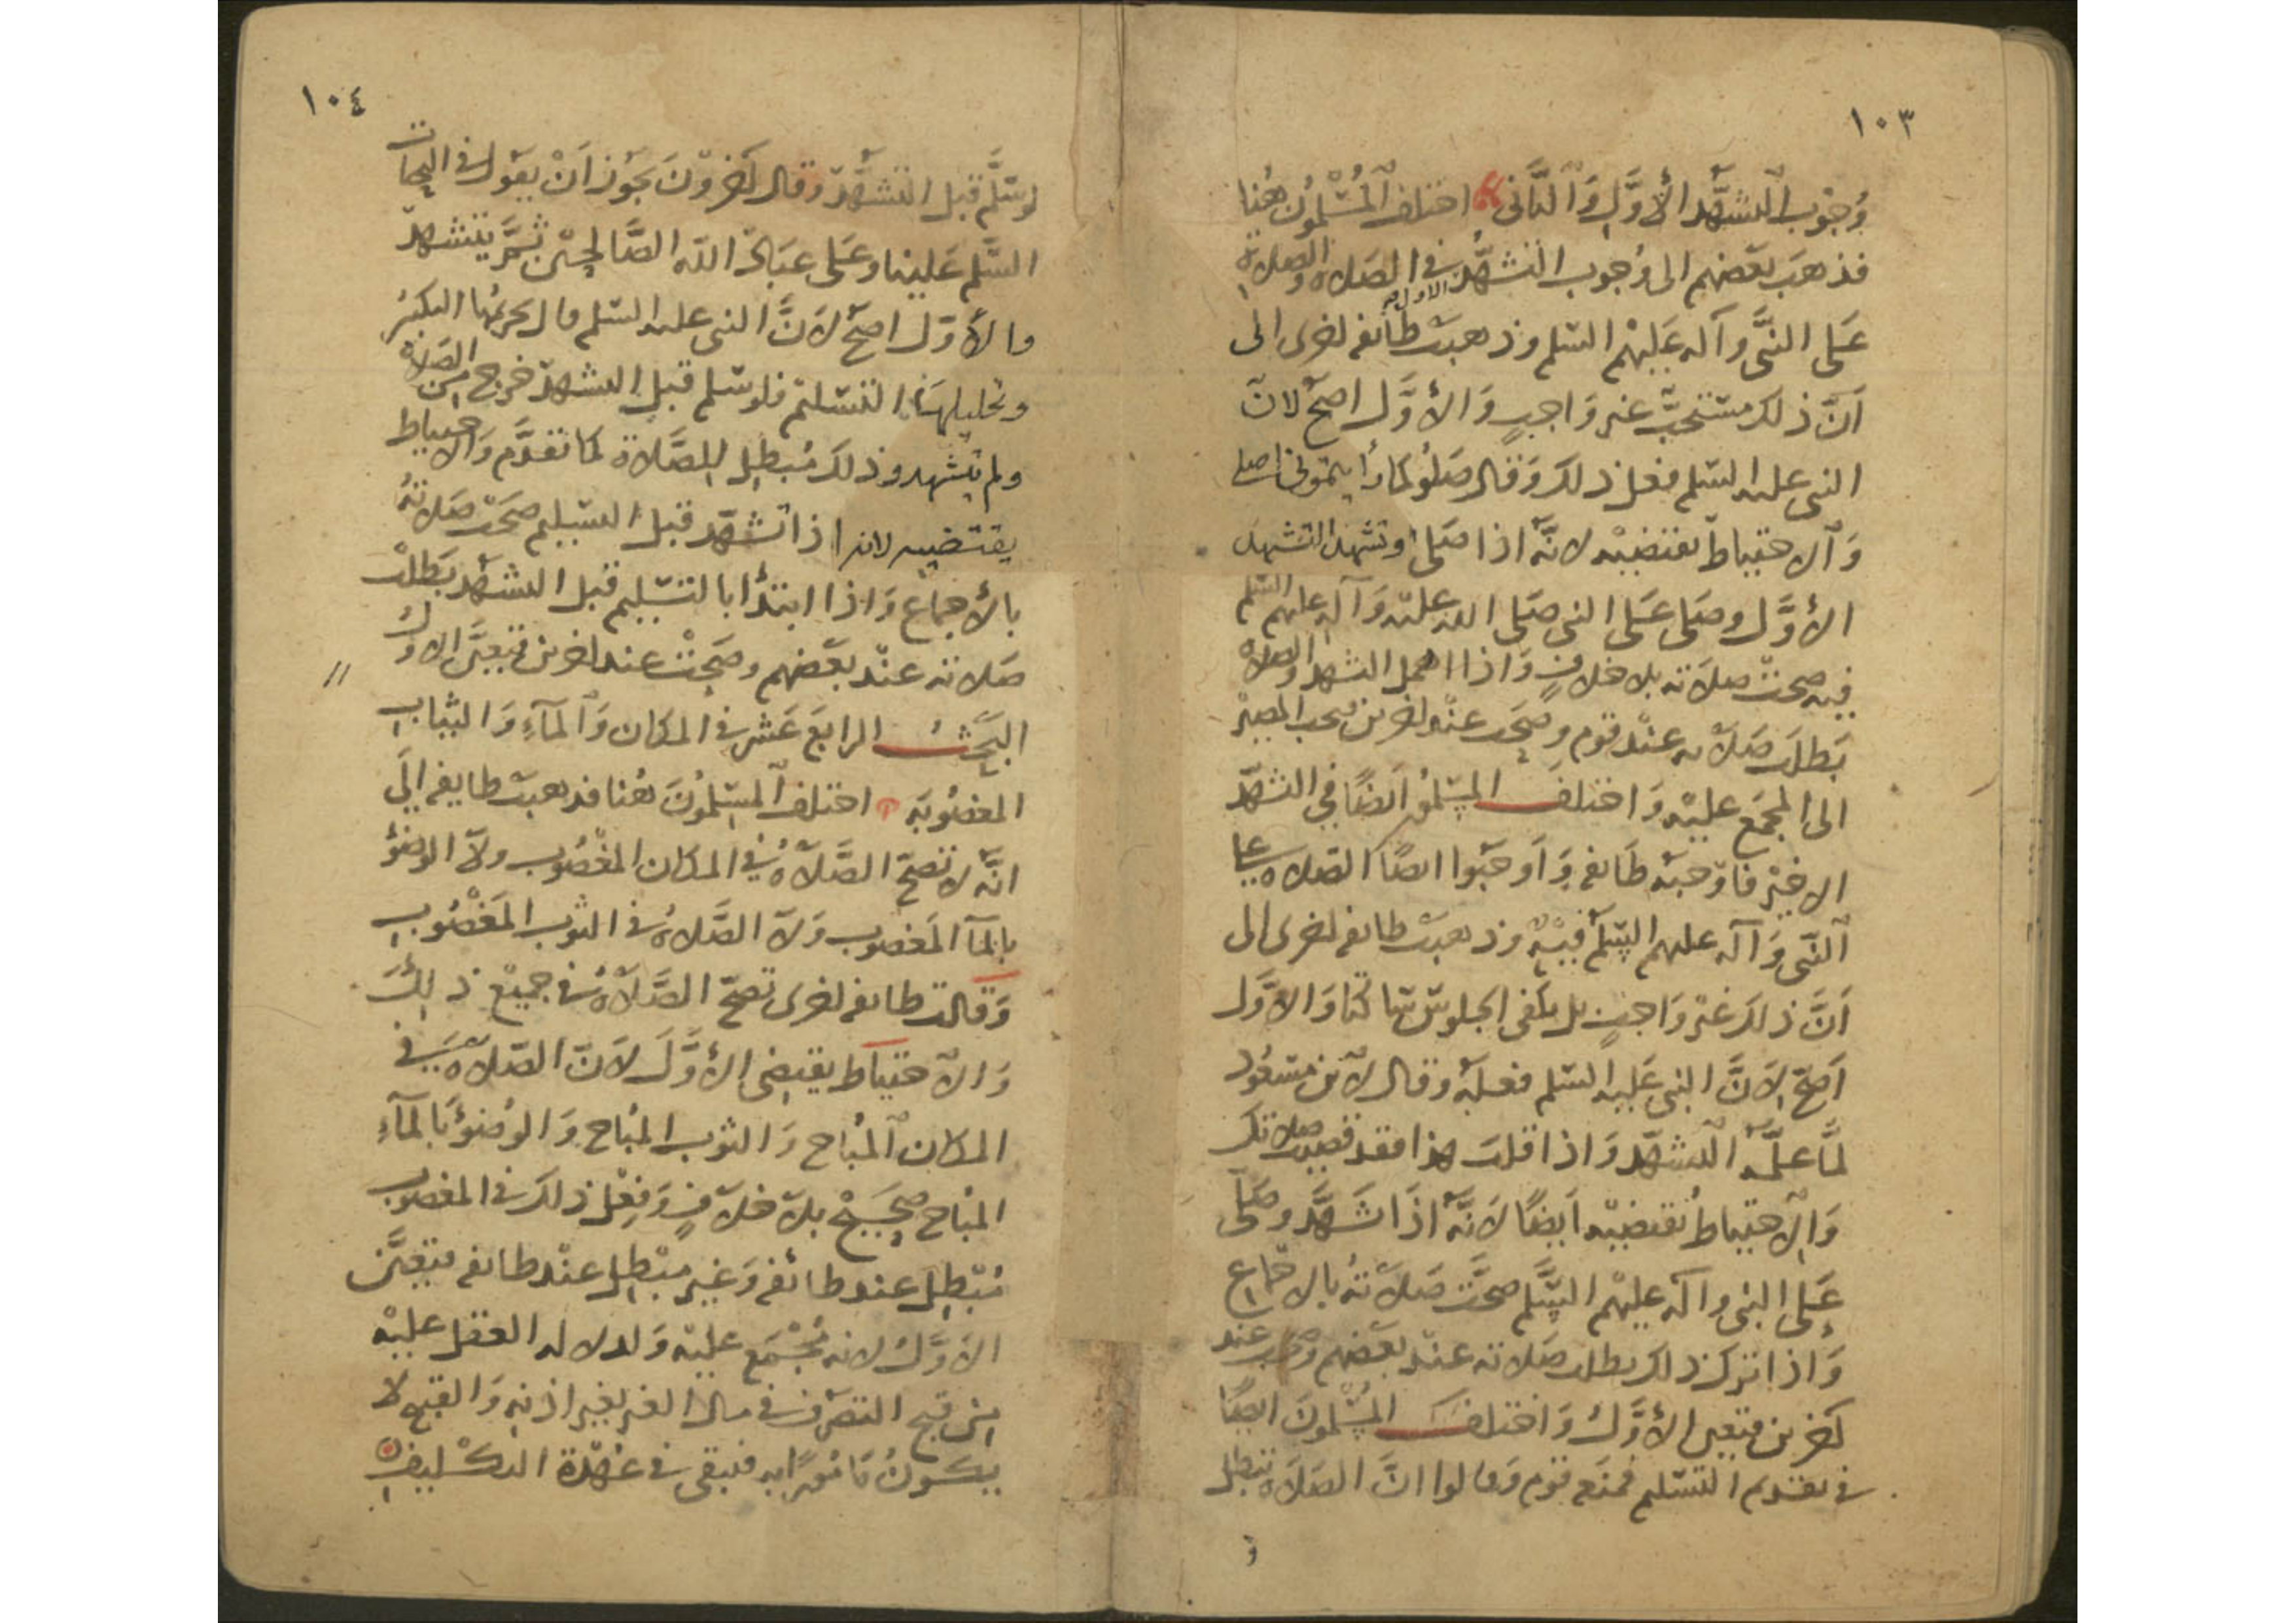 ١٠٣
وُجُوب التشهّد الأوَّل وَالثَّاني اختلف المُسْلمُون هُنا
فذهبَ بعَضهم الى وُجوب التشهُّد الاول في الصَلاه والصلاة
عَلى النَّبى وآله عَليْهم السّلم وذهبَت طائفه اخرى الى
اَنّ ذلك مستحبّ غير وَاجبٍ وَالأوَّل اصَحّ لانّ
النبى عليه السّلم فعل ذلك وَقال صَلُّو كما رأيتمونى اصلى
وَالاحتياط يقتضيْه لانَّه اذا صَلى وتشهد التشهد
الأوَّل وصَلى عَلى النبى صَلى الله عليْه وَآله عليهم السّلم
فيه صحتْ صلاَته بلا خلافٍ وَاذا اهمل التشهد والصلاة
بَطلت صَلاَته عنْد قوم وصحَت عنْد اخرين فيجب المصيْر
الى المجمَع عليْه وَاختلفَ المسْلمُون اَيْضًا في التشهّد
الاخيْر فاوْجبَه طَائفه وَاَوجَبُوا ايضًا الصّلاه على
النَّبى وَآله عليهم السَّلم فيْه وذهبَت طائفه اخرى الى
اَنَّ ذلك غيْر وَاجبٍ بل يكفى الجلوسُ ساكتا وَالاوَّل
اَصَحّ لاَنَّ النبى عَليه السّلم فعلَه وقال لابن مسْعُود
لمَّا علَّمه التشهّد وَاذا قلت هذا فقد قضيت صلاتك
وَالاحتياطُ يقتضيْه اَيضًا لاَنَّه اذَا تشَهَّد وصَلّى
عَلى النبى وآله عليْهم السَّلم صحَّت صَلاَتهُ بالاجماع
وَاذا ترك ذلك بطلت صَلاته عنْد بعَضهم وصحت عند
آخرين فتعين الأوَّل وَاختلفَ المسْلمُونَ ايضًا
في تقديم التسْليم فمنَع قوم وَقالوا انَّ الصَلاَة تبطل
و
١٠٤
لو سَلَّم قبل التشَهُّد وقال آخروْنَ يجُوز اَنْ يقوَل في التحيات
السَّلم عَلينا وعَلى عبَادِ اللّه الصَّالحيْن ثمَّ يتشهدّ
والأوّل اصَحّ لاَنَّ النبى عليه السّلم قال تحريمُها التكبيرُ
وتحليلها التسْليم فلو سَلم قبل التشهدّ خرج من الصَلاة
ولم يتشهد وذلك مُبطِل للصَّلاة لما تقدَّم وَالاحتياط
يقتضيه لانه اذا تشهّد قبل التسْليم صحَتْ صَلاَتهُ
بالأجماع وَاذا ابتدأ بالتسْليم قبل التشهّد بَطلتْ
صَلاته عنْد بعَضهم وصَحتْ عند اخرين فتعيَّن الاولُ
البَحَثُ الرابعَ عَشر في المكان وَالمآءِ وَالثياب
المغصُوبَه اختلف المسْلمُونَ هُنا فذهبتْ طايفه اِلى
انَّه لا تصحّ الصَّلاَهُ في المكان المغْصُوب ولا الوضوُ
بالمآ المَغصوب وَلا الصَّلاهُ في الثوب المَغْصُوب
وَقالت طائفه اخرى تصحّ الصَّلاَهُ في جميْع ذلِكَ
وَالاحتياط يقتضى الأوَّلَ لاَنّ الصّلاَه في
المكان المُباح وَالثوب المُباح وَالوُضوُء بالمآءِ
المبُاح صحَيْح بلا خلافٍ وَفعْل ذلك في المغصوب
مُبْطِل عند طائفه وَغير مبْطل عنْد طائفه فتعَيَّن
الاوَّل لانه مُجْمَع عليْه وَلدلاله العقل عليْه
من قبح التصَرّف في مال الغير بغير اذنه وَالقبيح لا
يكَونُ مَأمُورًا به فيبقى في عهْدَة التكليف